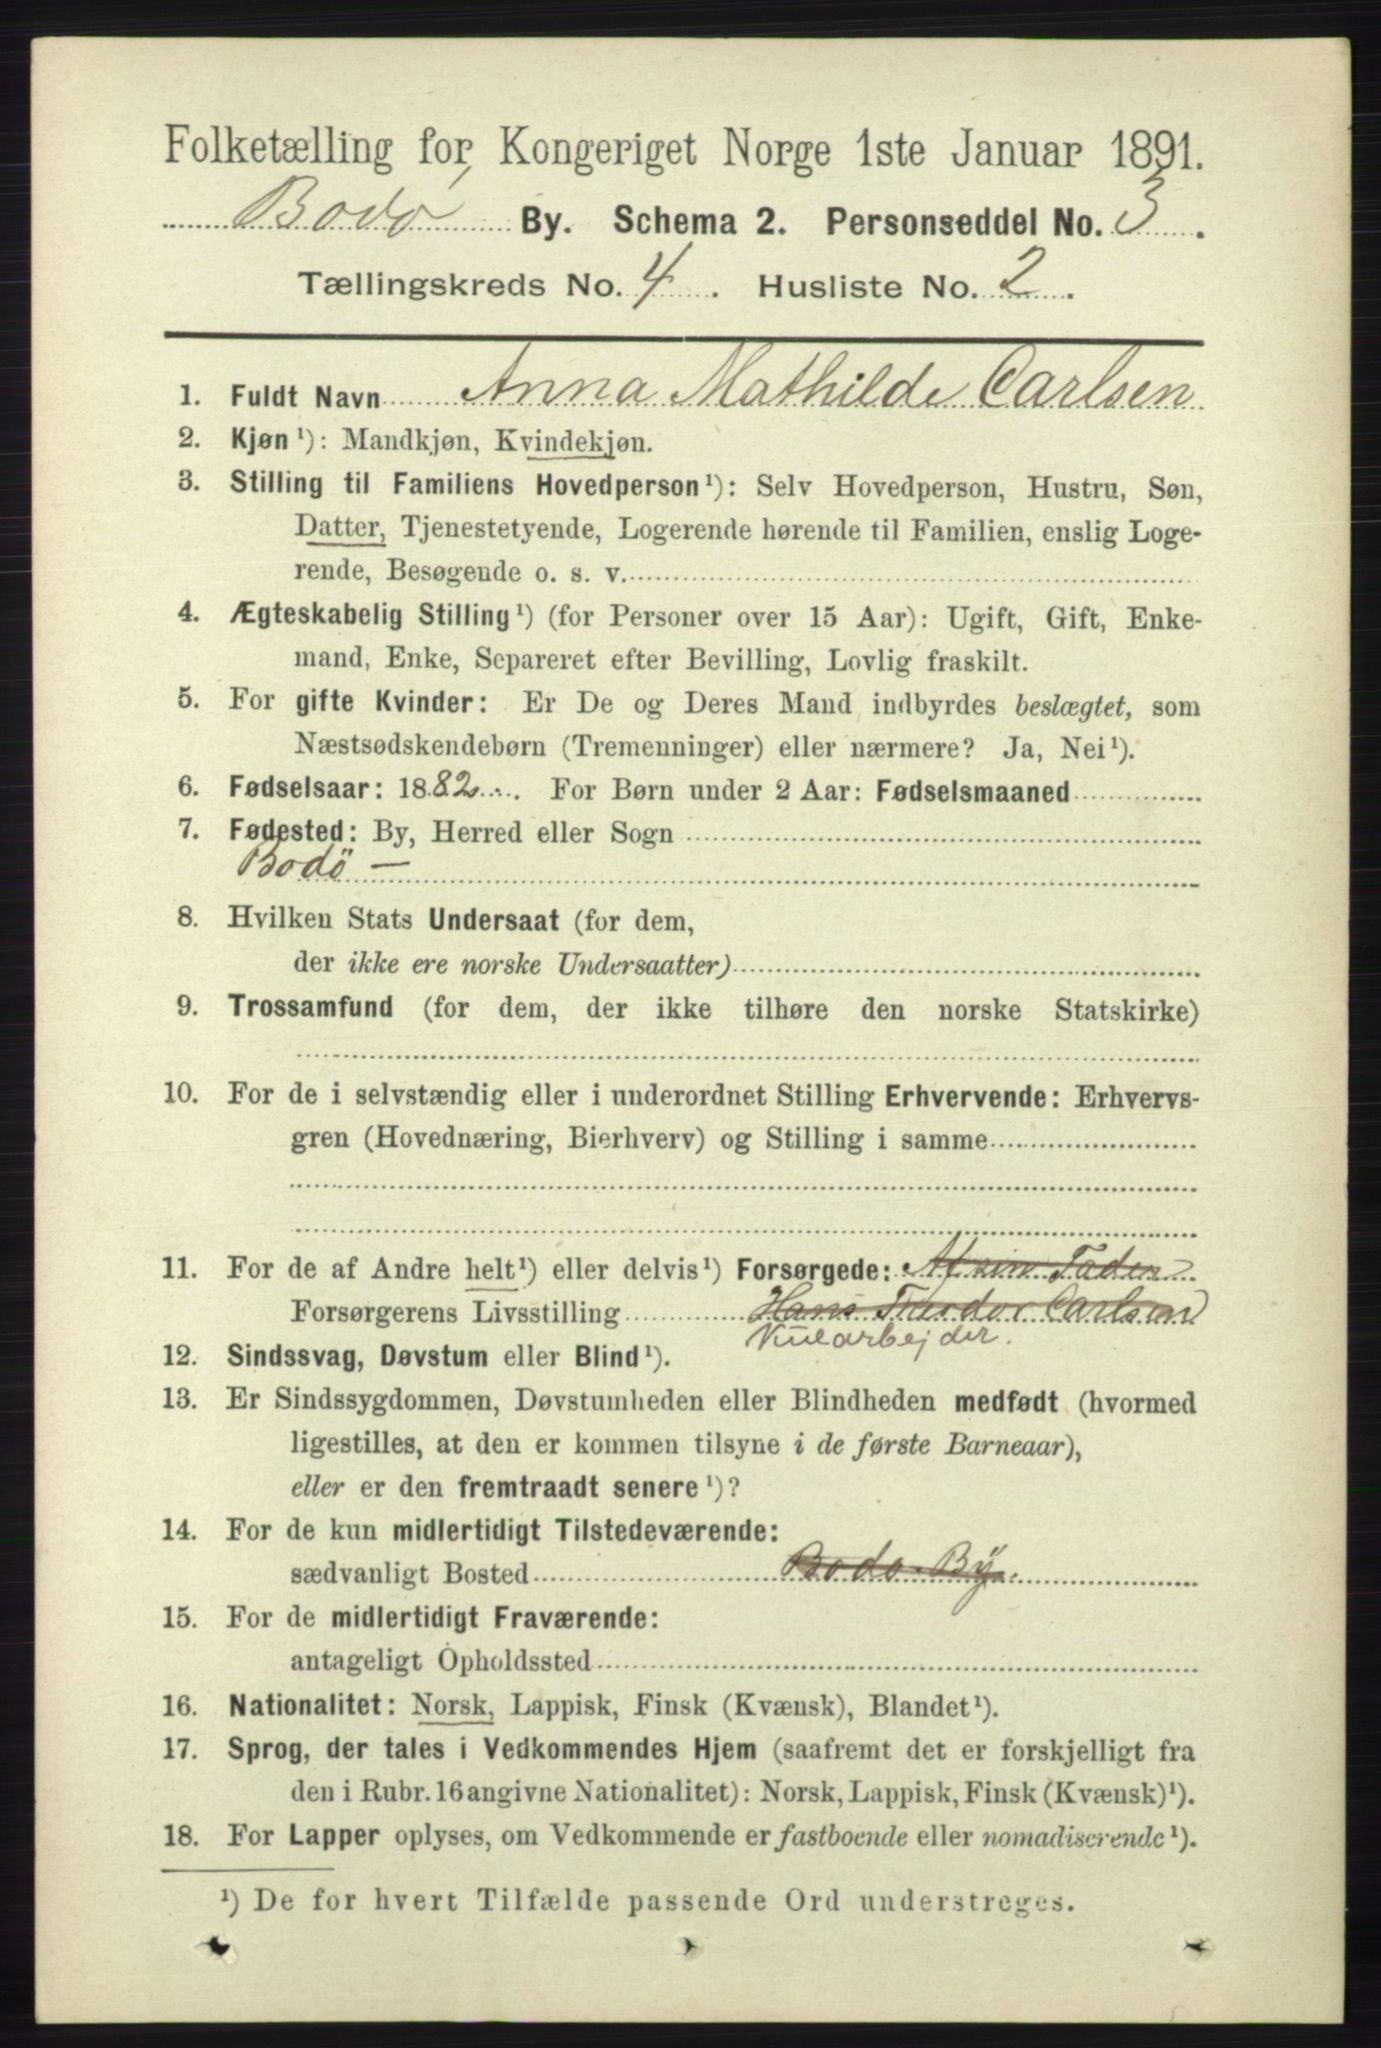 Folketælling for Kongeriget Norge 1ste Januar 1891.
Bodø By. Schema 2. Personseddel No. 3.
Tællingskreds No. 4. Husliste No. 2.
1. Fuldt Navn Anna Mathilde Carlsen
2. Kjøn ¹): Mandkjøn, Kvindekjøn.
3. Stilling til Familiens Hovedperson ¹): Selv Hovedperson, Hustru, Søn,
Datter, Tjenestetyende, Logerende hørende til Familien, enslig Loge-
rende, Besøgende o. s. v.
4. Ægteskabelig Stilling ¹) (for Personer over 15 Aar): Ugift, Gift, Enke-
mand, Enke, Separeret efter Bevilling, Lovlig fraskilt.
5. For gifte Kvinder: Er De og Deres Mand indbyrdes beslægtet, som
Næstsødskendebørn (Tremenninger) eller nærmere? Ja, Nei ¹).
6. Fødselsaar: 1882. For Børn under 2 Aar: Fødselsmaaned
7. Fødested: By, Herred eller Sogn
Bodö —
8. Hvilken Stats Undersaat (for dem,
der ikke ere norske Undersaatter)
9. Trossamfund (for dem, der ikke tilhøre den norske Statskirke)
10. For de i selvstændig eller i underordnet Stilling Erhvervende: Erhvervs-
gren (Hovednæring, Bierhverv) og Stilling i samme
11. For de af Andre helt ¹) eller delvis ¹) Forsørgede: Af sin Fader
Forsørgerens Livsstilling Hans Theodor Carlsen
Kularbejder.
12. Sindssvag, Døvstum eller Blind ¹).
13. Er Sindssygdommen, Døvstumheden eller Blindheden medfødt (hvormed
ligestilles, at den er kommen tilsyne i de første Barneaar),
eller er den fremtraadt senere ¹)?
14. For de kun midlertidigt Tilstedeværende:
sædvanligt Bosted Bodø By.
15. For de midlertidigt Fraværende:
antageligt Opholdssted
16. Nationalitet: Norsk, Lappisk, Finsk (Kvænsk), Blandet ¹).
17. Sprog, der tales i Vedkommendes Hjem (saafremt det er forskjelligt fra
den i Rubr. 16 angivne Nationalitet): Norsk, Lappisk, Finsk (Kvænsk) ¹).
18. For Lapper oplyses, om Vedkommende er fastboende eller nomadiserende ¹).
¹) De for hvert Tilfælde passende Ord understreges.